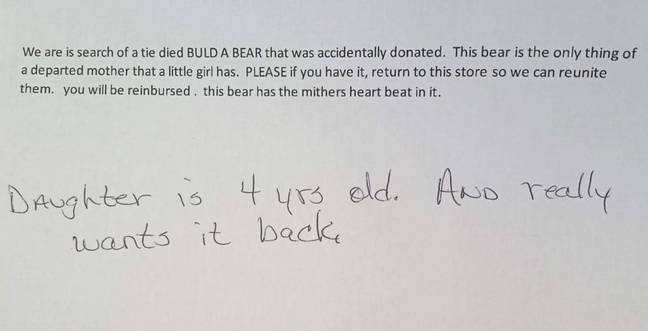 We are is search of a tie died BULD A BEAR that was accidentally donated. This bear is the only thing of
a departed mother that a little girl has. PLEASE if you have it, return to this store so we can reunite
them. you will be reinbursed . this bear has the mithers heart beat in it.
DAughter is 4 yrs old. AND really
wants it back.